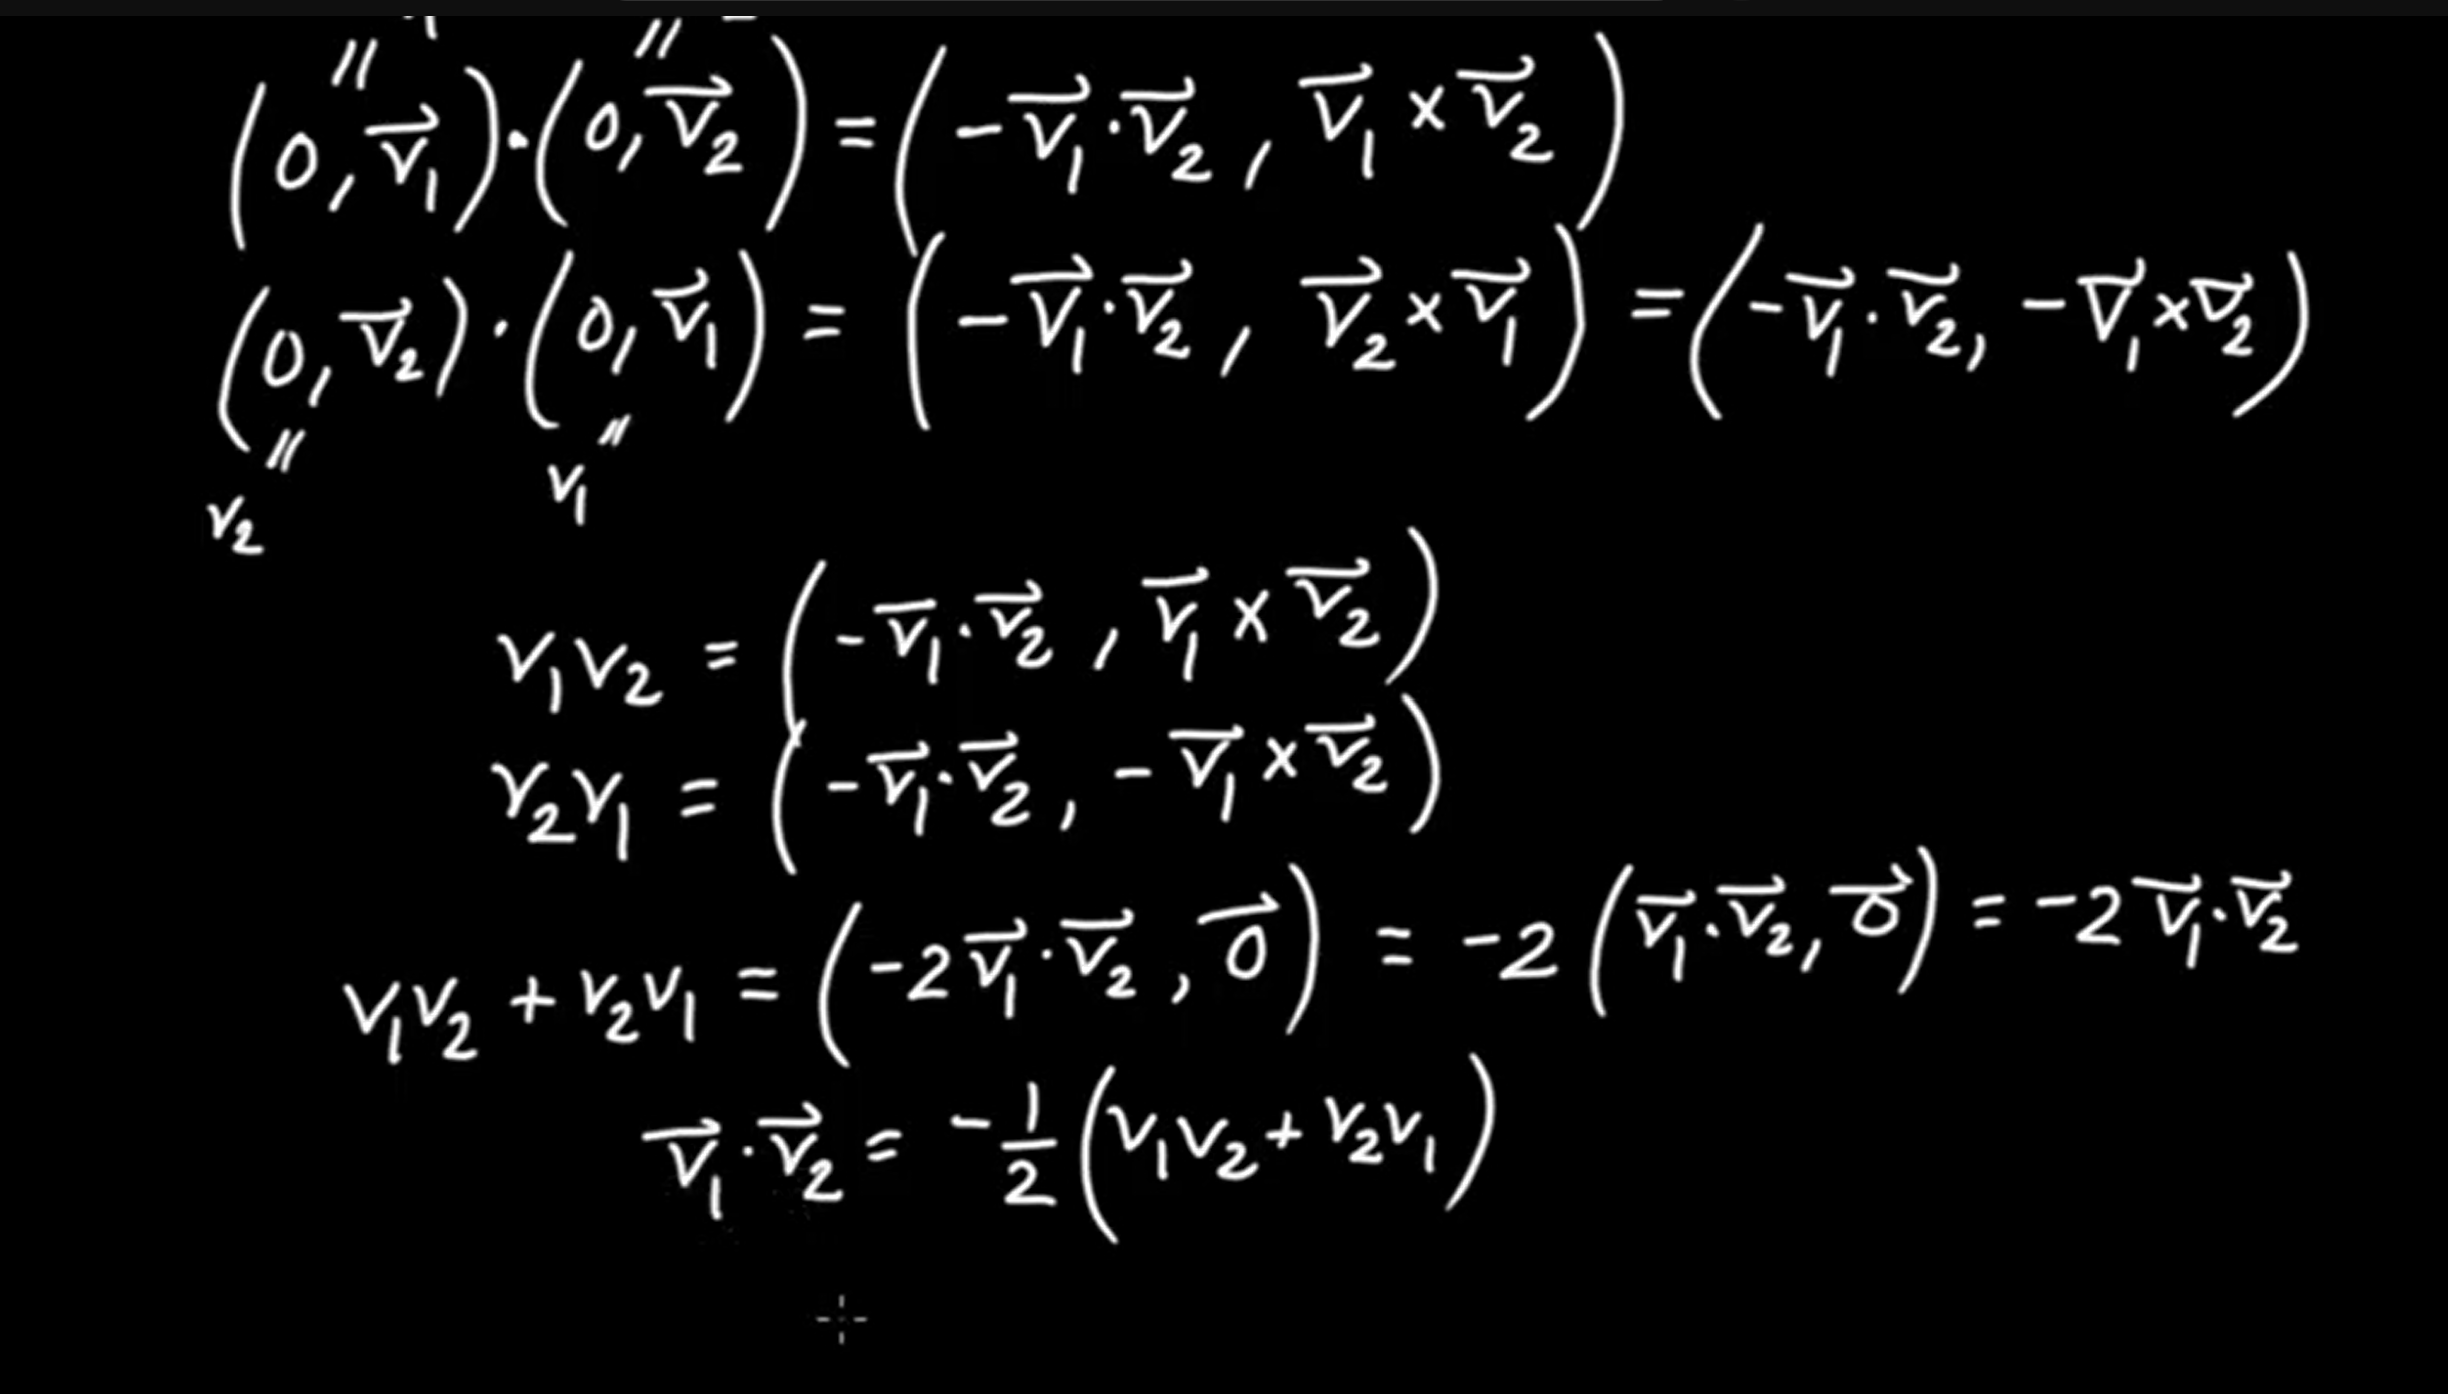 (0, v⃗₁)·(0, v⃗₂) = (-v⃗₁·v⃗₂, v⃗₁×v⃗₂)
(0, v⃗₂)·(0, v⃗₁) = (-v⃗₁·v⃗₂, v⃗₂×v⃗₁) = (-v⃗₁·v⃗₂, -v⃗₁×v⃗₂)
v₂ v₁
v₁v₂ = (-v⃗₁·v⃗₂, v⃗₁×v⃗₂)
v₂v₁ = (-v⃗₁·v⃗₂, -v⃗₁×v⃗₂)
v₁v₂ + v₂v₁ = (-2v⃗₁·v⃗₂, 0⃗) = -2(v⃗₁·v⃗₂, 0⃗) = -2v⃗₁·v⃗₂
v⃗₁·v⃗₂ = -1/2(v₁v₂ + v₂v₁)